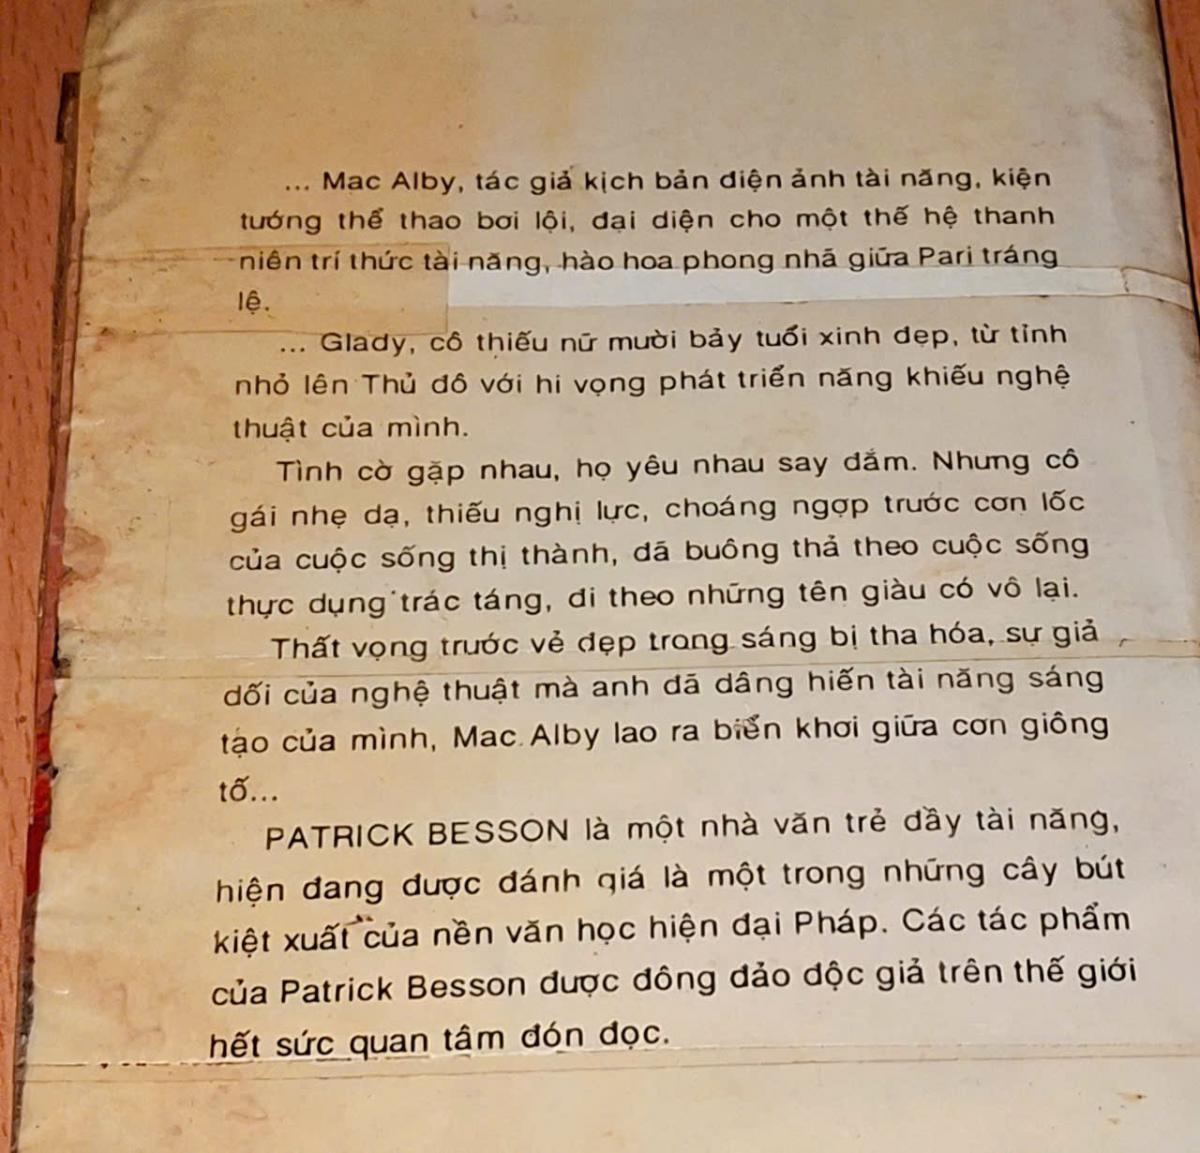 ... Mac Alby, tác giả kịch bản điện ảnh tài năng, kiện
tướng thể thao bơi lội, đại diện cho một thế hệ thanh
niên trí thức tài năng, hào hoa phong nhã giữa Pari tráng
lệ.
... Glady, cô thiếu nữ mười bảy tuổi xinh đẹp, từ tỉnh
nhỏ lên Thủ đô với hi vọng phát triển năng khiếu nghệ
thuật của mình.
Tình cờ gặp nhau, họ yêu nhau say đắm. Nhưng cô
gái nhẹ dạ, thiếu nghị lực, choáng ngợp trước cơn lốc
của cuộc sống thị thành, đã buông thả theo cuộc sống
thực dụng trác táng, đi theo những tên giàu có vô lại.
Thất vọng trước vẻ đẹp trong sáng bị tha hóa, sự giả
dối của nghệ thuật mà anh đã dâng hiến tài năng sáng
tạo của mình, Mac Alby lao ra biển khơi giữa cơn giông
tố...
PATRICK BESSON là một nhà văn trẻ đầy tài năng,
hiện đang được đánh giá là một trong những cây bút
kiệt xuất của nền văn học hiện đại Pháp. Các tác phẩm
của Patrick Besson được đông đảo độc giả trên thế giới
hết sức quan tâm đón đọc.